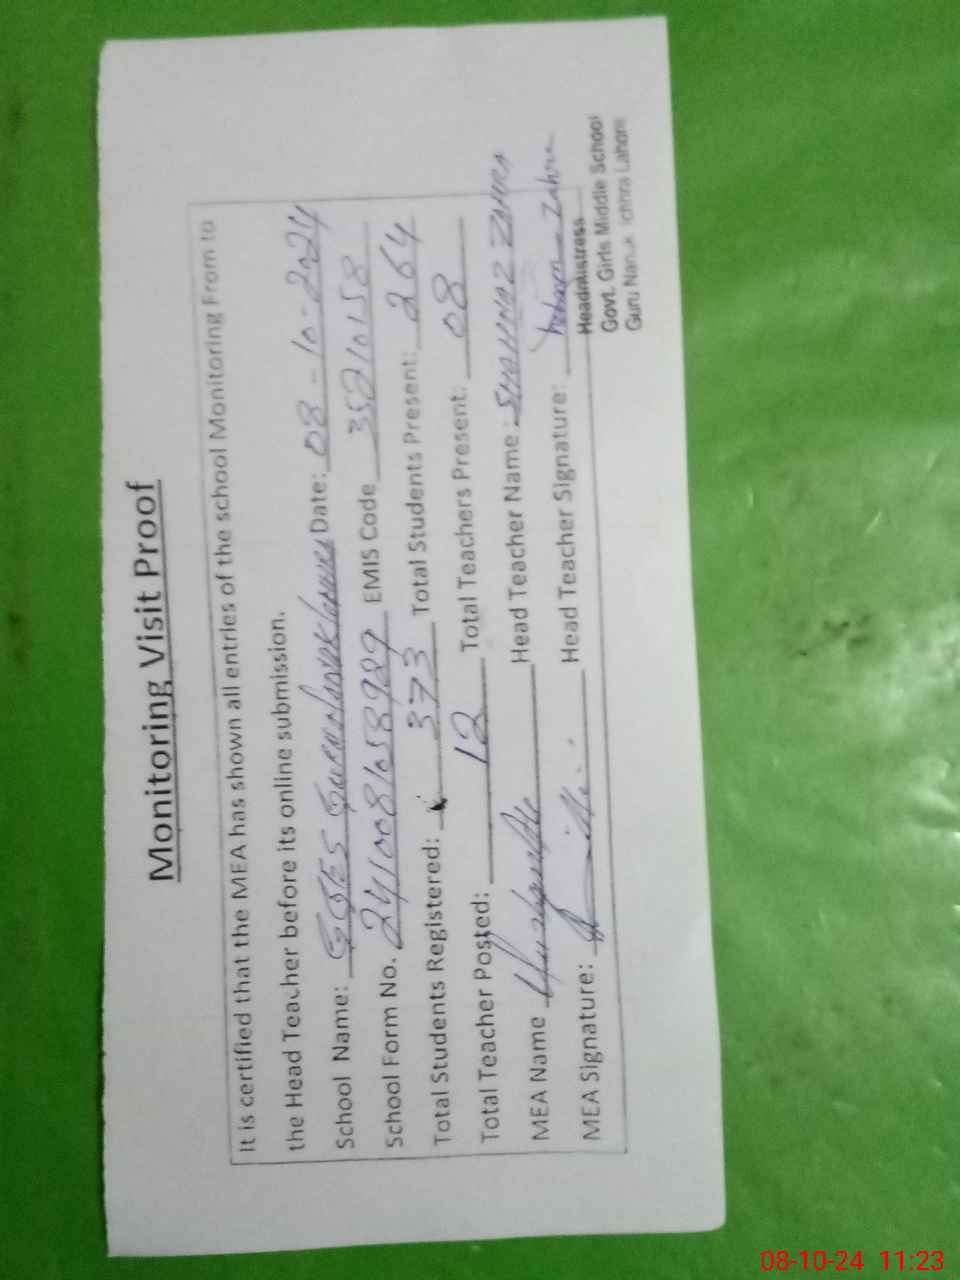 Monitoring Visit Proof
It is certified that the MEA has shown all entries of the school Monitoring From to
the Head Teacher before its online submission.
School Name: GGES Date: 08-10-2024
School Form No. 2410081058989 EMIS Code 35210158
Total Students Registered: 373 Total Students Present: 264
Total Teacher Posted: 12 Total Teachers Present: 08
MEA Name Head Teacher Name: SHAHNAZ ZAHRA
MEA Signature: Head Teacher Signature: Zahra
Headmistress
Govt. Girls Middle School
Guru Nanak Ichhra Lahore
08-10-24 11:23